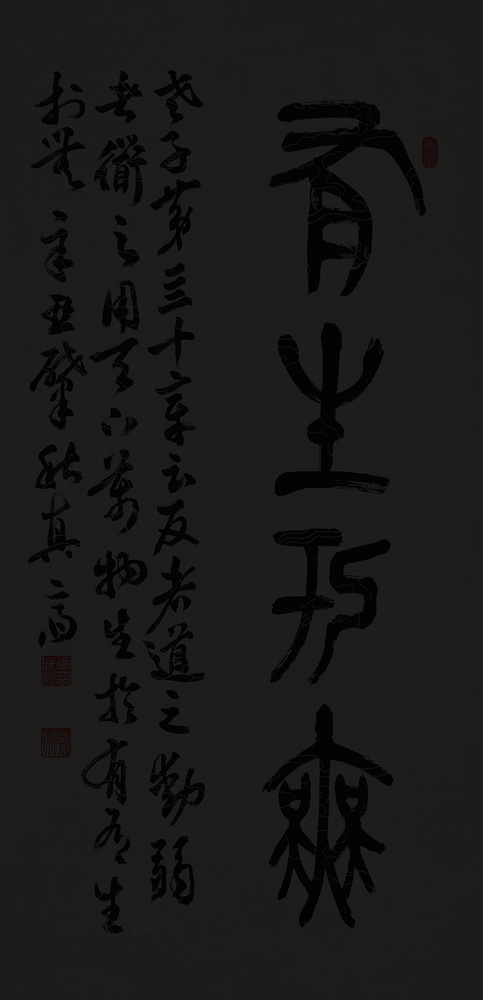 有生于無
老子第三十章云反者道之動弱
者衟之用天下萬物生於有有生
於無 辛丑肇秋真